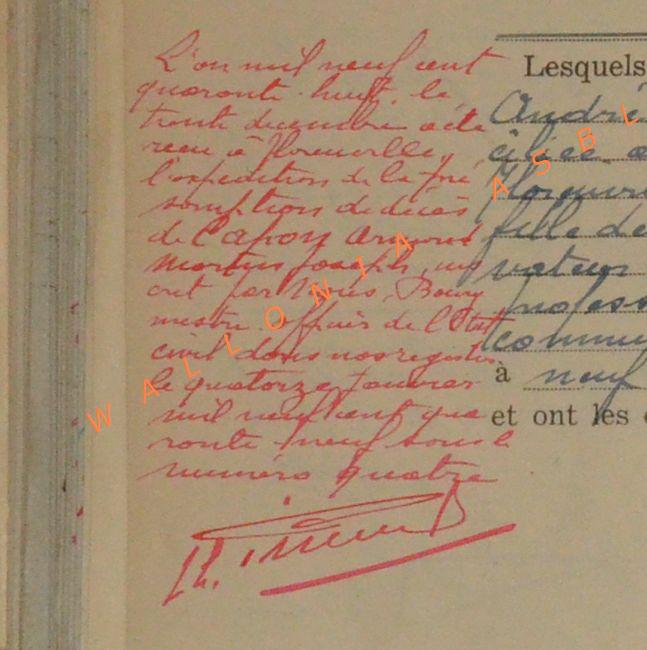 L'an mil neuf cent
quarante-huit, le
trente decembre a été
recu à Florenville,
l'expédition de la pré
somption de décès
de Capon Armand
Martin Joseph,
crit par Nous, Bourg
mestre officier de l'Etat
civil dans nos registres
le quatorze Janvier
mil neuf cent qua
rante-neuf sous le
numéro quatre
Lesquels
André
fille de
profess
commu
à neuf
et ont les
WALLONIA ASBL